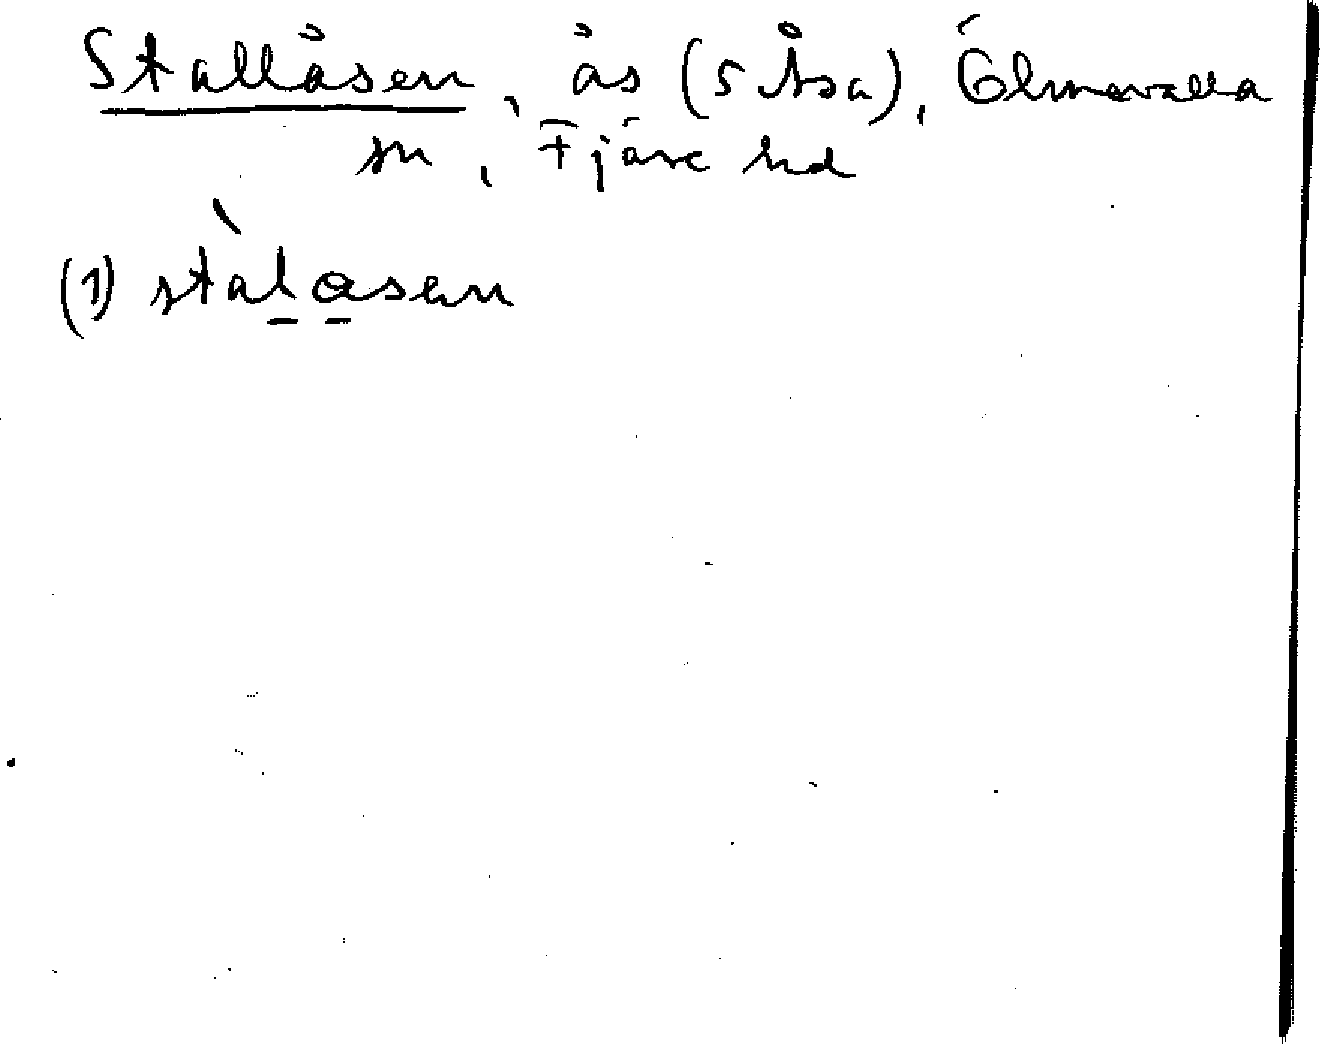 Stallåsen, ås (5 Åsa), Ölmevalla
sn, Fjäre hd
(1) stàl̲a̲sen